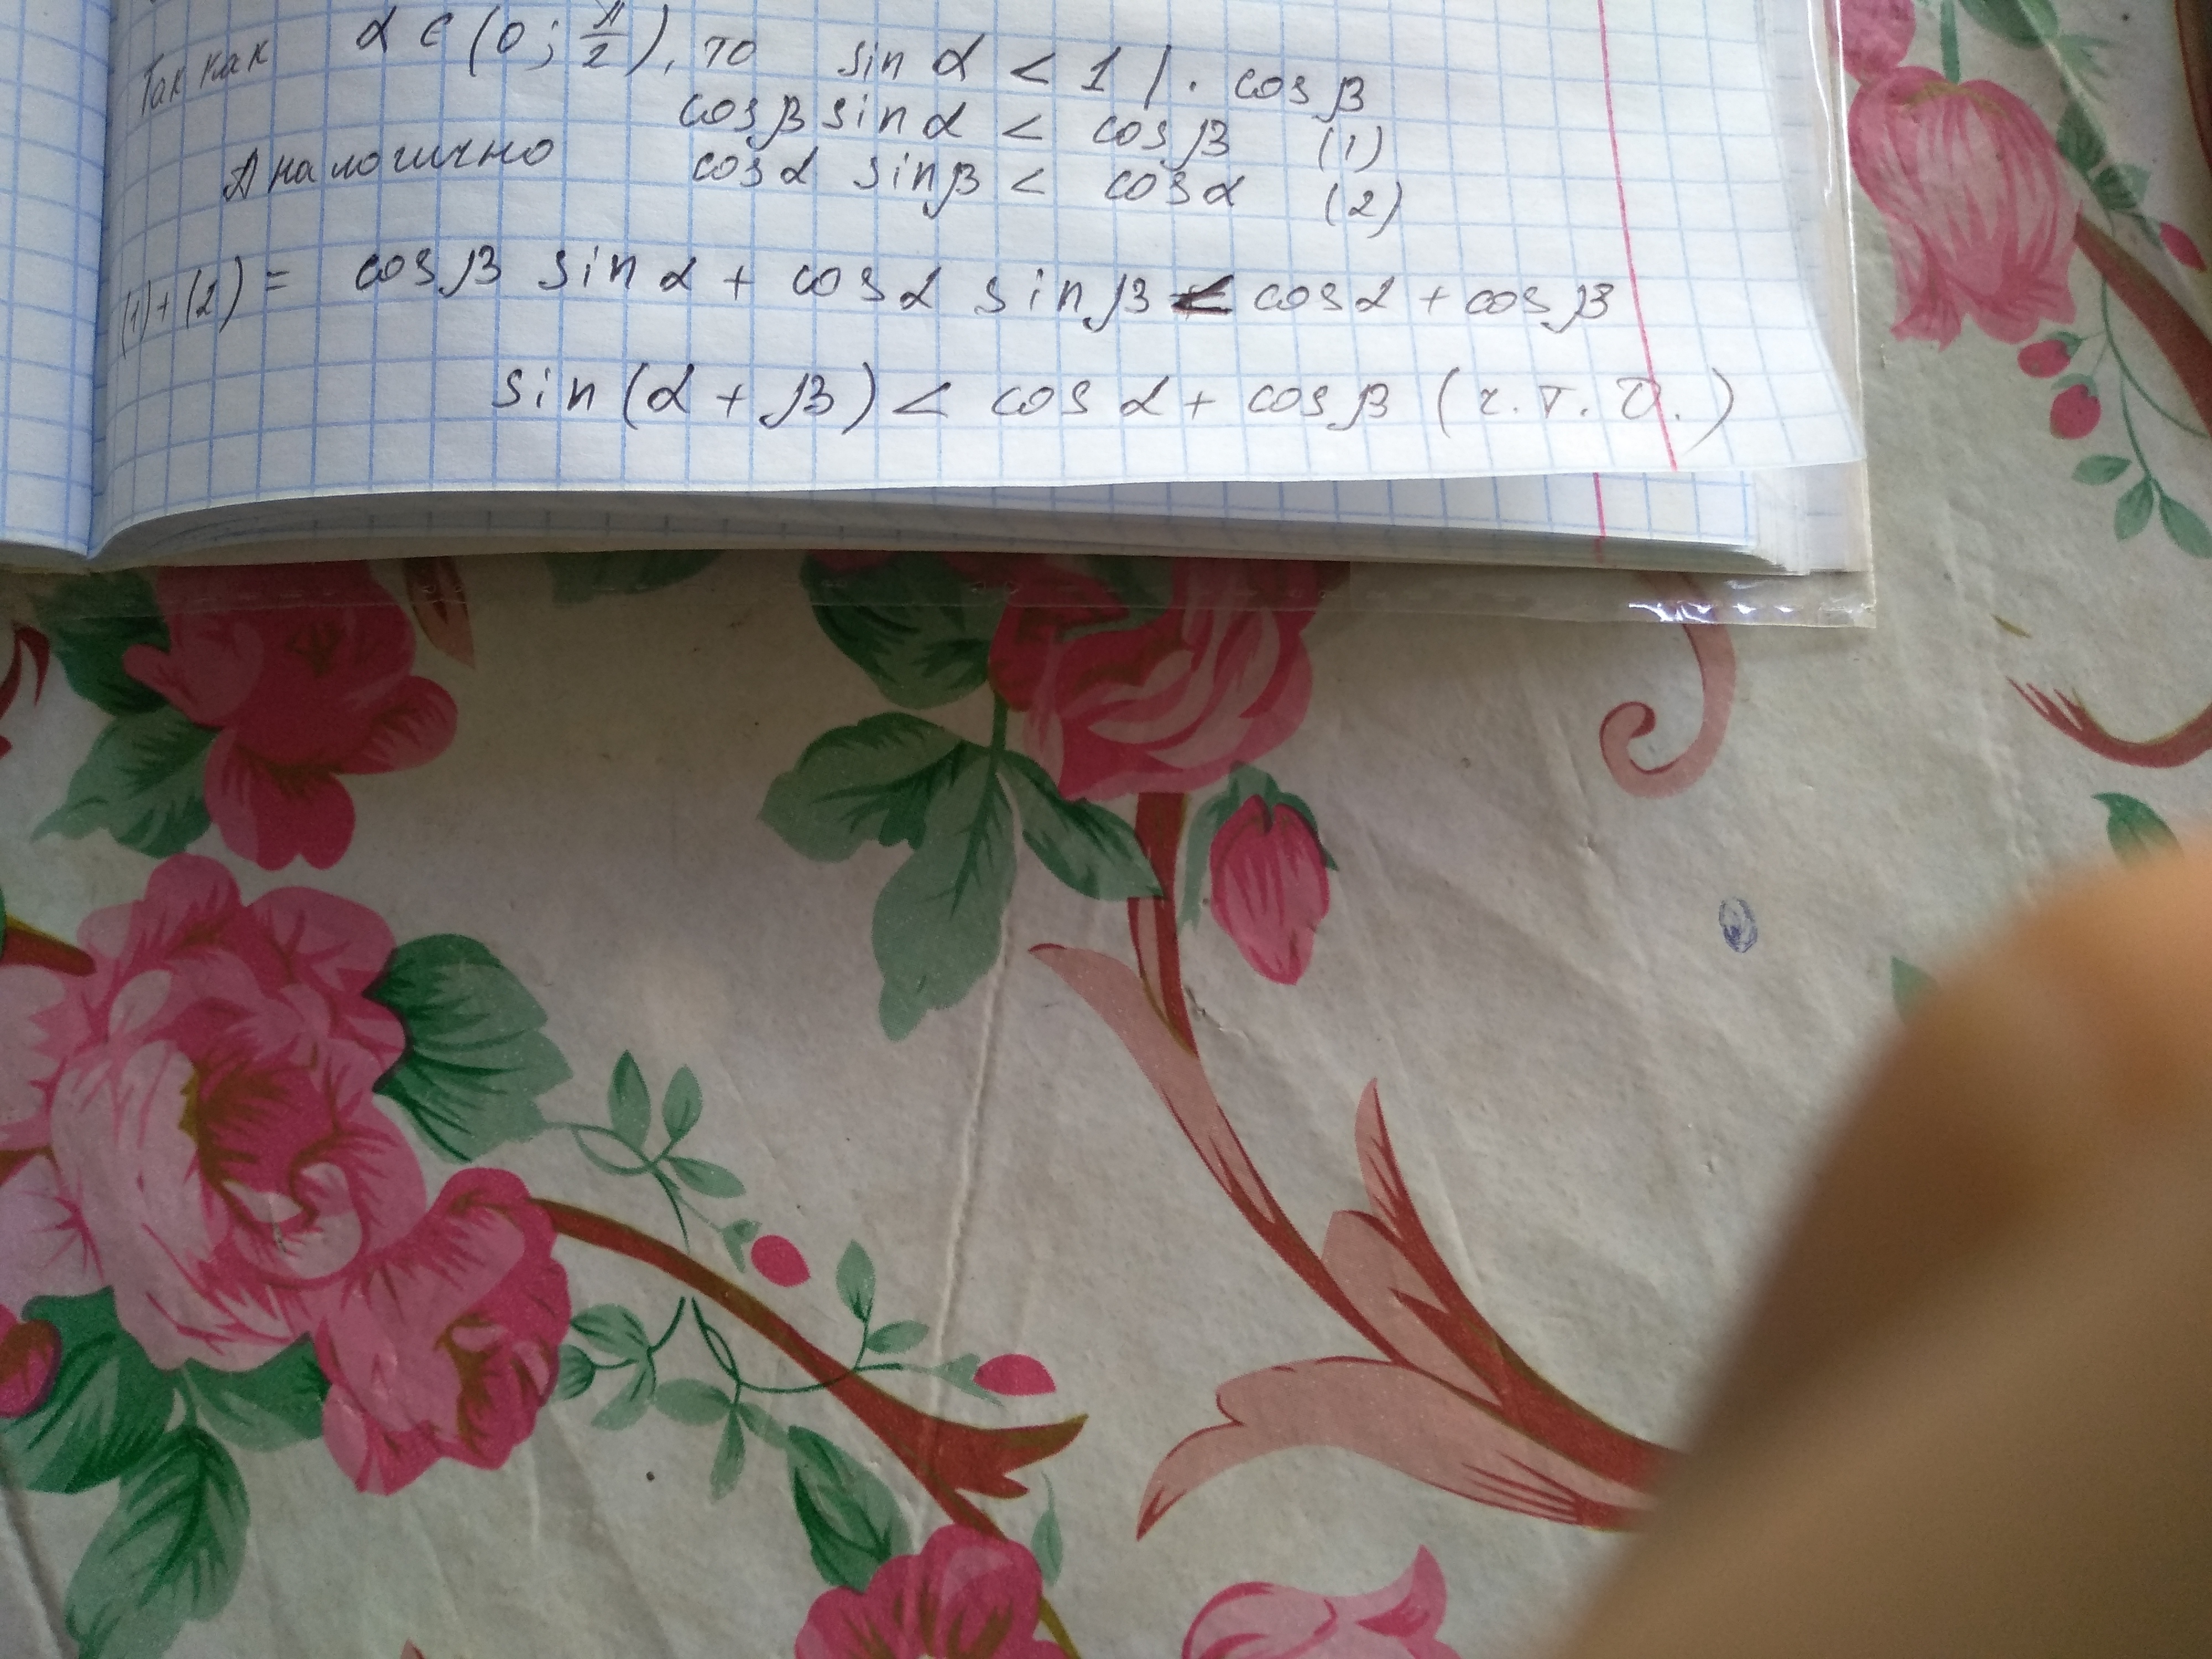 Так как α ∈ (0; π/2), то sin α < 1 | · cos β
cos β sin α < cos β (1)
Аналогично cos α sin β < cos α (2)
(1)+(2) = cos β sin α + cos α sin β < cos α + cos β
sin (α + β) < cos α + cos β (ч.т.д.)